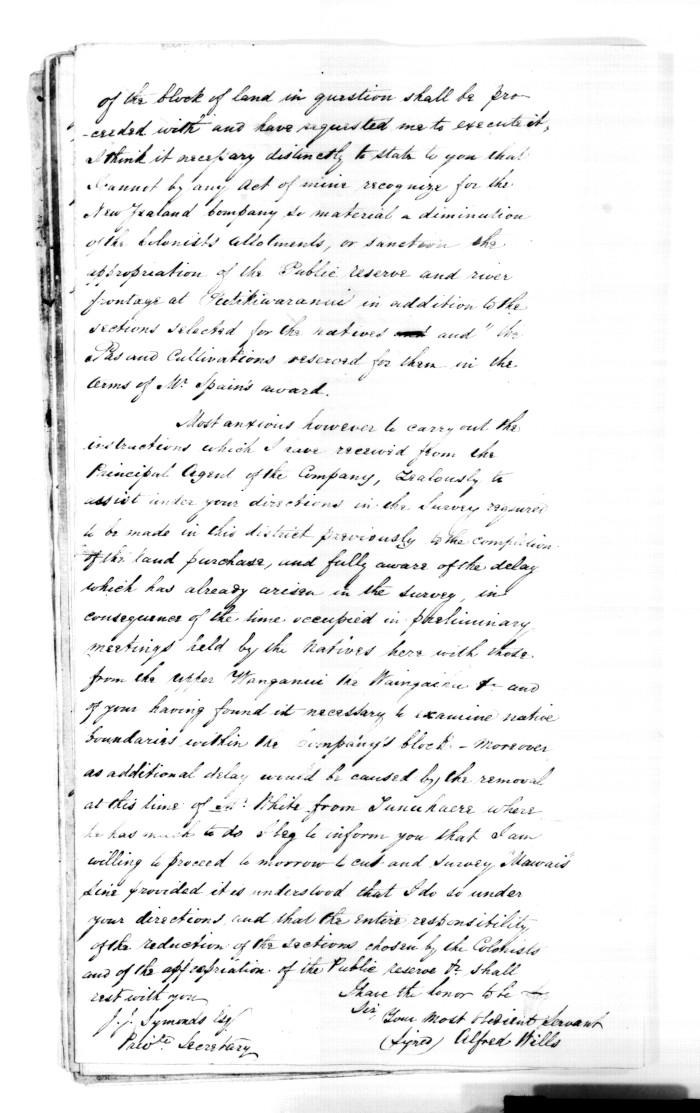 of the block of land in question shall be pro-
-ceeded with and have requested me to execute it,
I think it necessary distinctly to state to you that
I cannot by any act of mine recognize for the
New Zealand Company so material a diminution
of the Colonists allotments, or sanction the
appropriation of the Public reserve and river
frontage at in addition to the
sections selected for the natives and " the
Pas and Cultivations reserved for them in the
terms of Mr. Spain's award.
Most anxious however to carry out the
instructions which I have received from the
Principal Agent of the Company, Zealously to
assist under your directions in the Survey required
to be made in this district previously to the completion
of the land purchase, and fully aware of the delay
which has already arisen in the survey, in
consequence of the time occupied in preliminary
meetings held by the Natives here with those
from the upper Wanganui the &c and
of your having found it necessary to examine native
boundaries within the Company's block - Moreover
as additional delay would be caused by the removal
at this time of Mr. White from Tunuhaere where
he has much to do I beg to inform you that I am
willing to proceed to morrow to cut and survey "Mawai's
line provided it is understood that I do so under
your directions and that the entire responsibility
of the reduction of the sections chosen by the Colonists
and of the appropriation of the Public reserve &c shall
rest with you
I have the honor to be &c
Sir,
Your most obedient servant
(Signed) Alfred Wills
J. J. Symonds Esq
Private Secretary